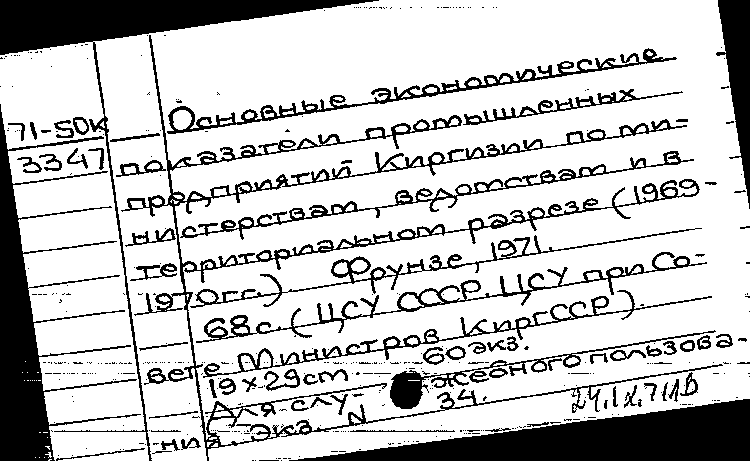 71-50к
3347
Основные экономические
показатели промышленных
предприятий Киргизии по ми-
нистерствам, ведомствам и в
территориальном разрезе (1969-
1970гг.) Фрунзе, 1971.
68с. (ЦСУ СССР. ЦСУ при Со-
вете Министров КиргССР).
19×29cm. 60экз.
Для слу- жебного пользова-
ния. Экз. N 34.